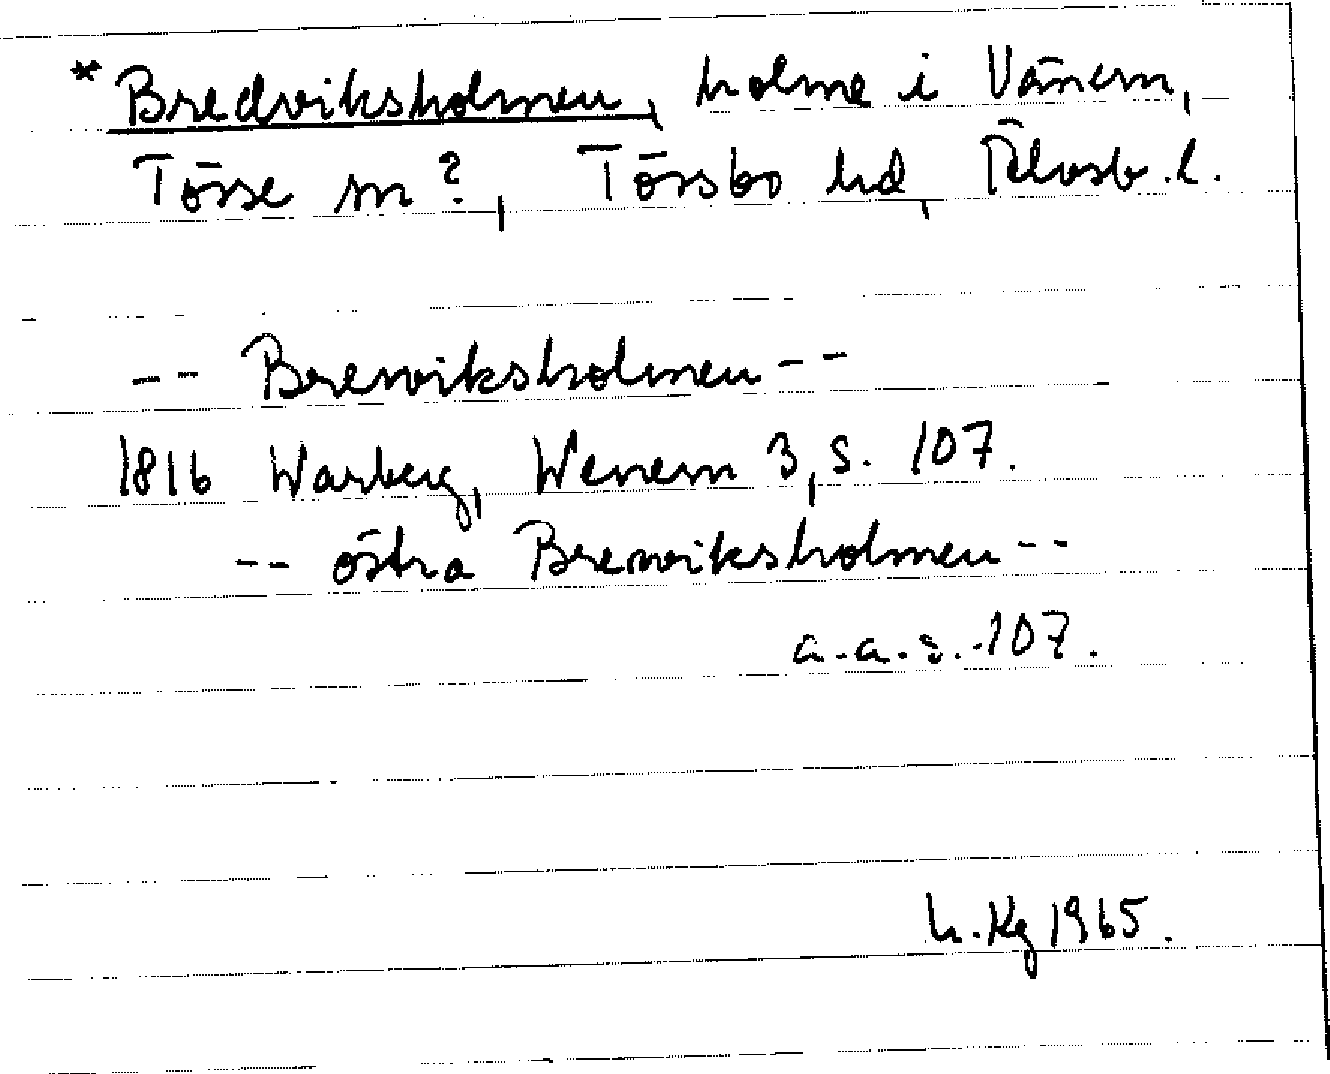 * Bredviksholmen, holme i Vänern,
Tösse sn?, Tössbo hd, Älvsb. l.
-- Brenviksholmen --
1816 Warberg, Wenern 3, s. 107.
-- östra Brenviksholmen --
a.a.s. 107.
h. Kg 1965.